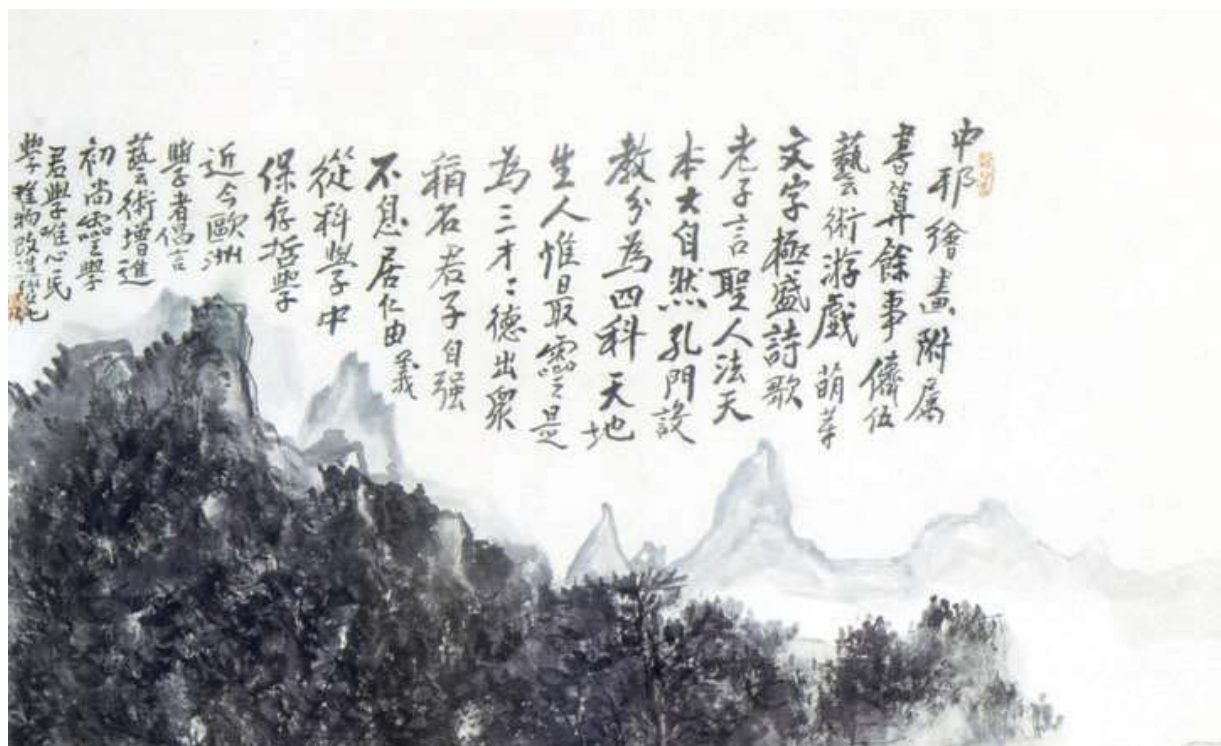 中邦繪畫附屬
書算餘事儕伍
藝術游戲萌芽
文字極盛詩歌
老子言聖人法天
本大自然孔門設
教分為四科天地
生人惟最靈是
為三才二德出眾
稱名君子自强
不息居仁由義
從科學中
保存哲學
近今歐洲
學者倡言
藝術增進
初尚靈學
君學唯心民
學唯物改造變化